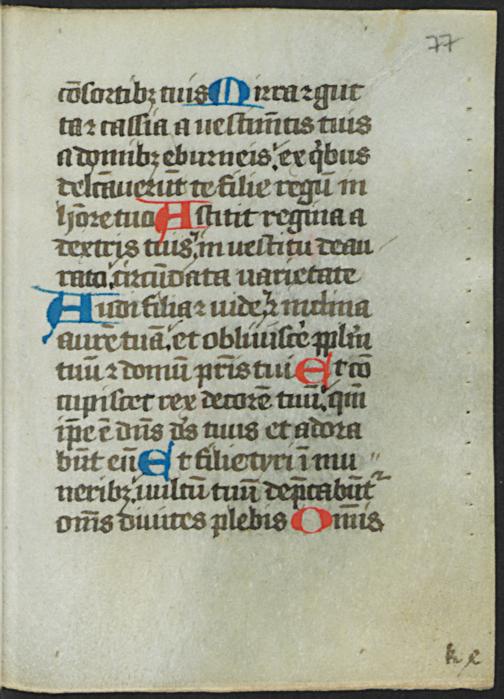 77
cōsortibꝫ tuis Mirra ⁊ gut
ta ⁊ cassia a uestim̄tis tuis
a domibꝫ eburneis, ex q̇bus
delc̄auerūt te filie regū in
hōre tuo Astitit regina a
dextris tuis, in uestitu deau
rato, circūdata uarietate
Audi filia ⁊ uide, ⁊ inclina
aurē tuā, et obliuiscē ppl̄m
tuū ⁊ domū pr̄is tui Et cō
cupiscet rex decorē tuū, qm̄
ip̄e ē dn̄s ds̄ tuus et adora
būt eū Et filie tyri ī mu〃
neribꝫ, uultū tuū dep̄cabūt᷑
om̄s diuites plebis Om̄is